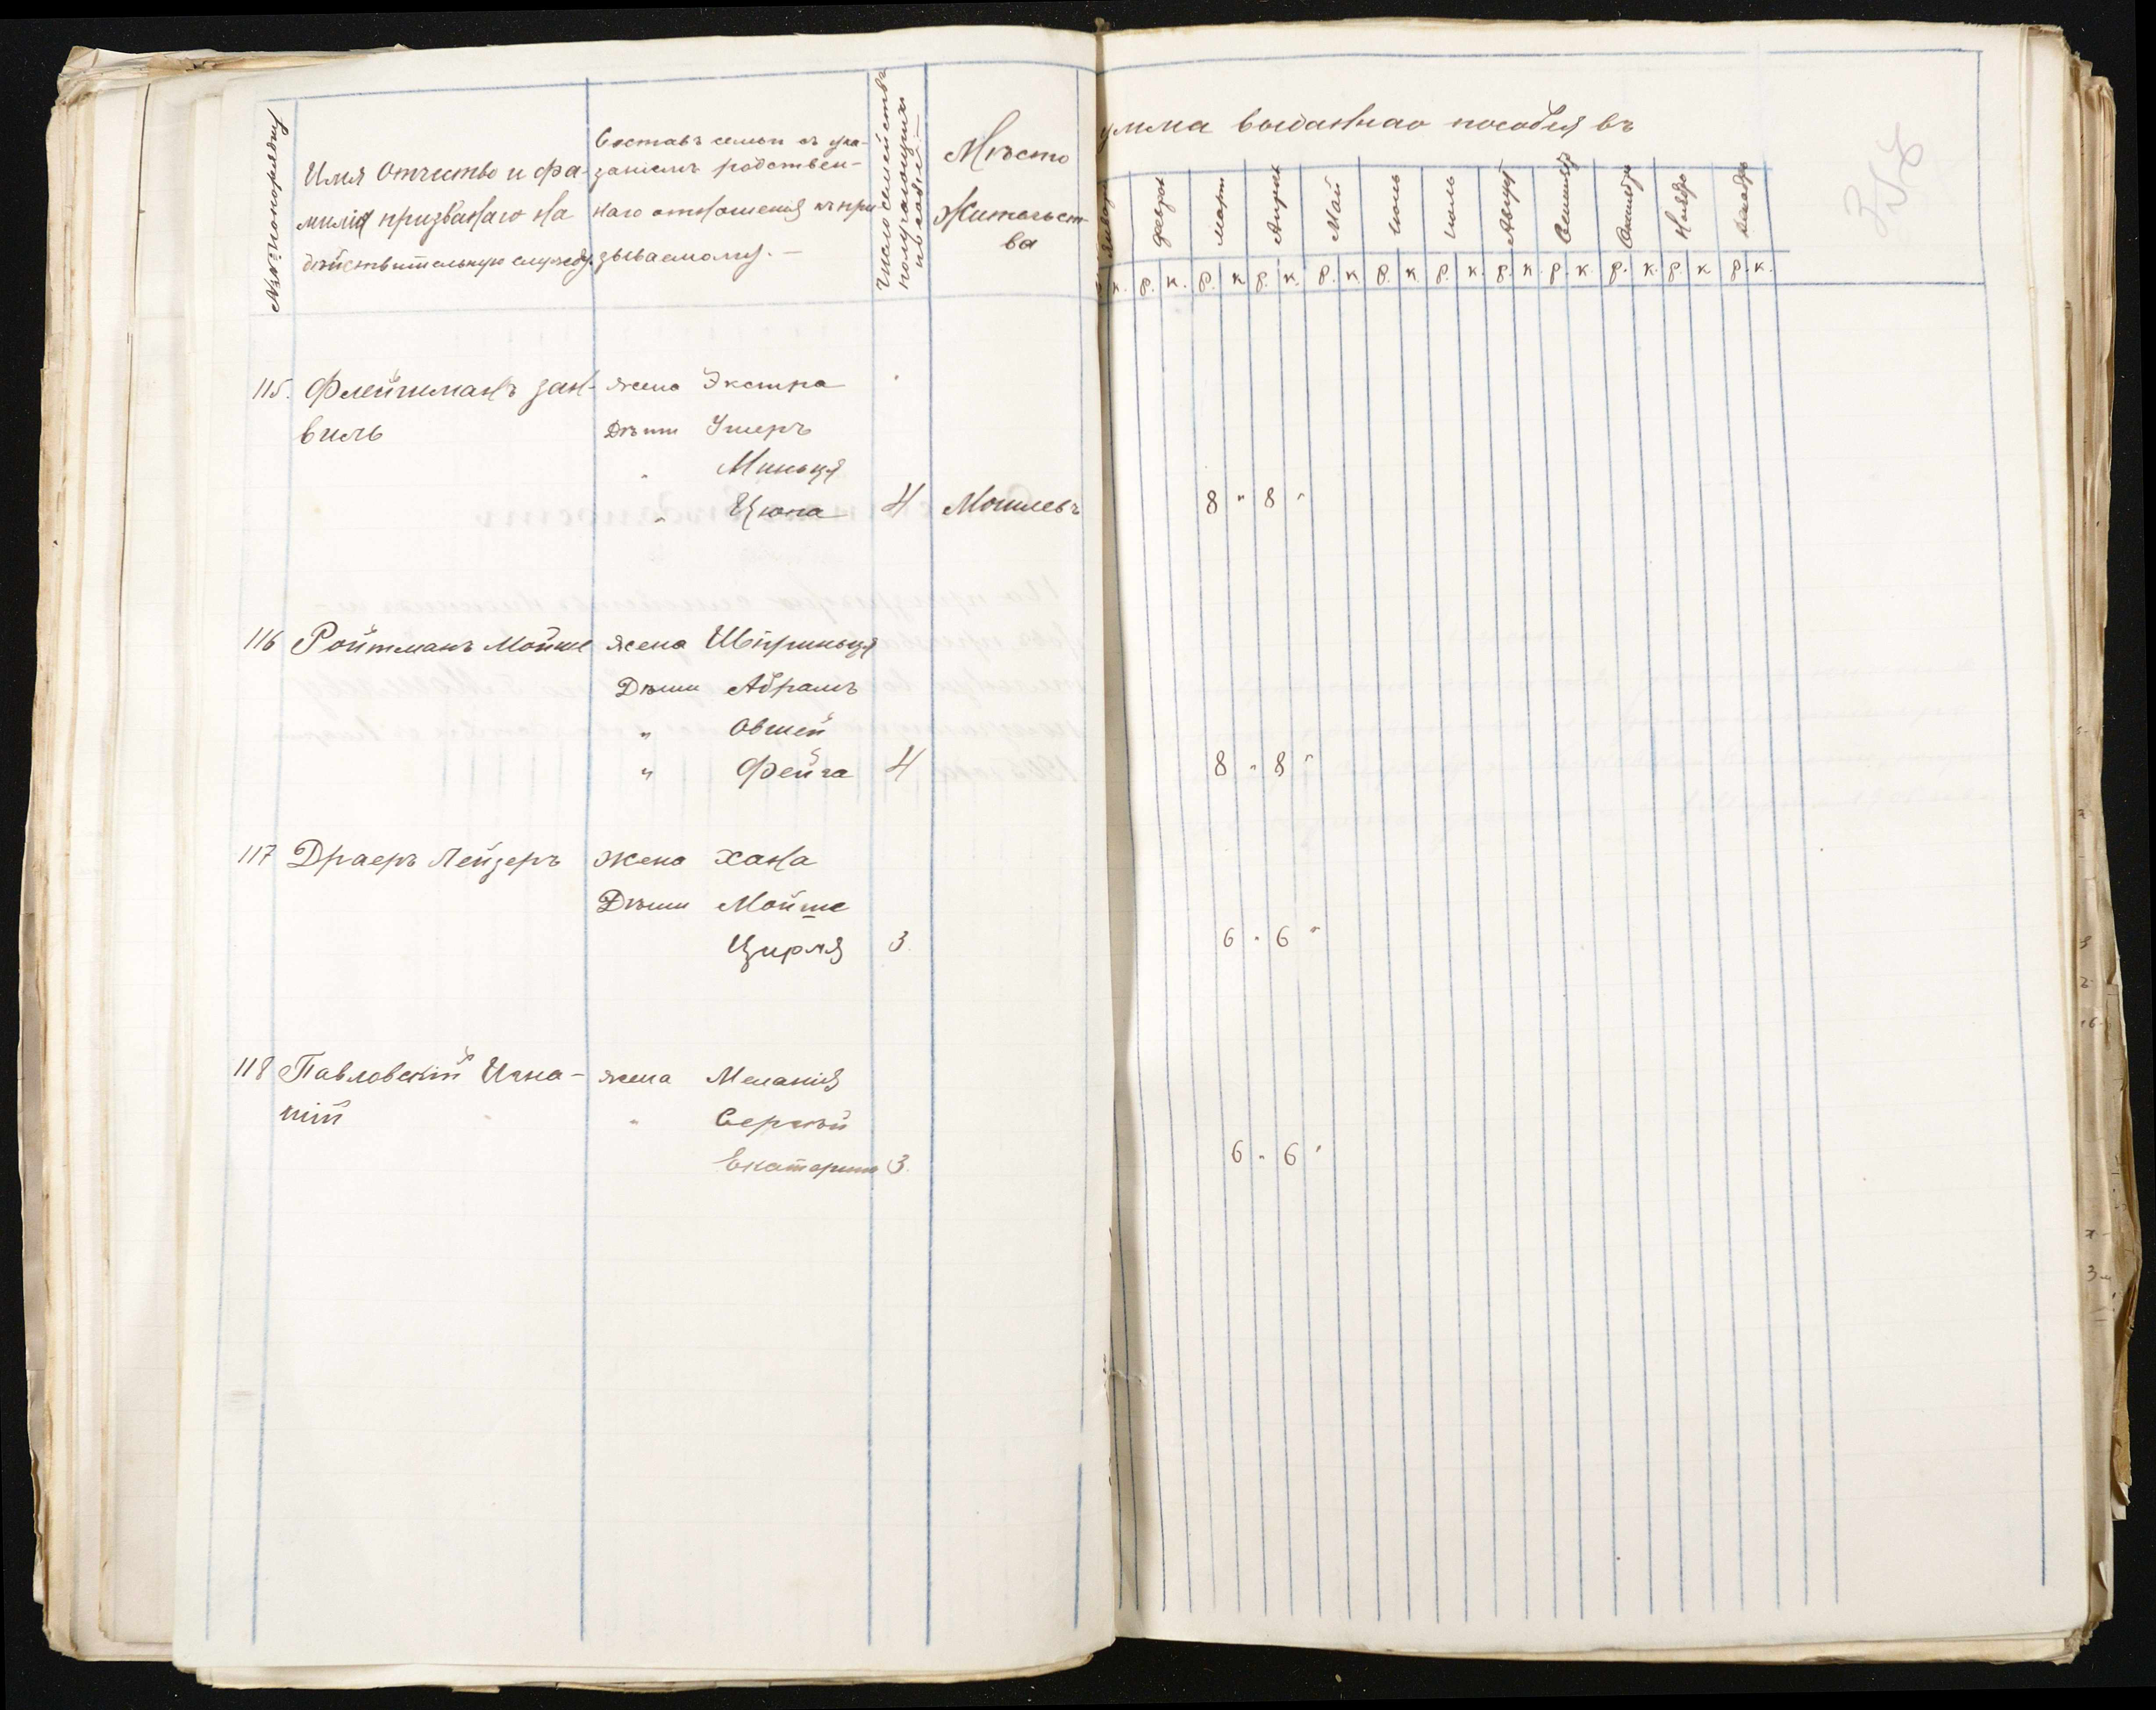 №№ по порядку
Имя Отчество и фа-
милія призванаго на
дѣйствительную службу.
Составъ семьи съ ука-
заніемъ родствен-
наго отношенія къ при
зываемому. —
Число семействъ
получающихъ
пособіе —
Мѣсто
Жительст-
ва
умма выданнаго пособія въ
Январь февраль мартъ Апрѣль Май Іюнь Іюль Августъ Сентябрь Октябрь Ноябрь Декабрь
к. р. к. р. к р. к. р. к р. к р. к. р. к. р. к. р. к. р. к р. к.
115. Флейшманъ Зан- жена Экстра
виль Дѣти Ушеръ
" Миньця
" Цюпа 4 Могилевъ 8 " 8 "
116 Ройтманъ Мойше жена Шпринця
Дѣти Абрамъ
" Овшей
" Фейга 4 8 " 8 "
117 Драеръ Лейзеръ жена Хана
Дѣти Мойше
Цирля 3. 6 " 6 "
118 Павловскій Игна- жена Меланія
тій " Сергѣй
Екатерина 3. 6 " 6 "